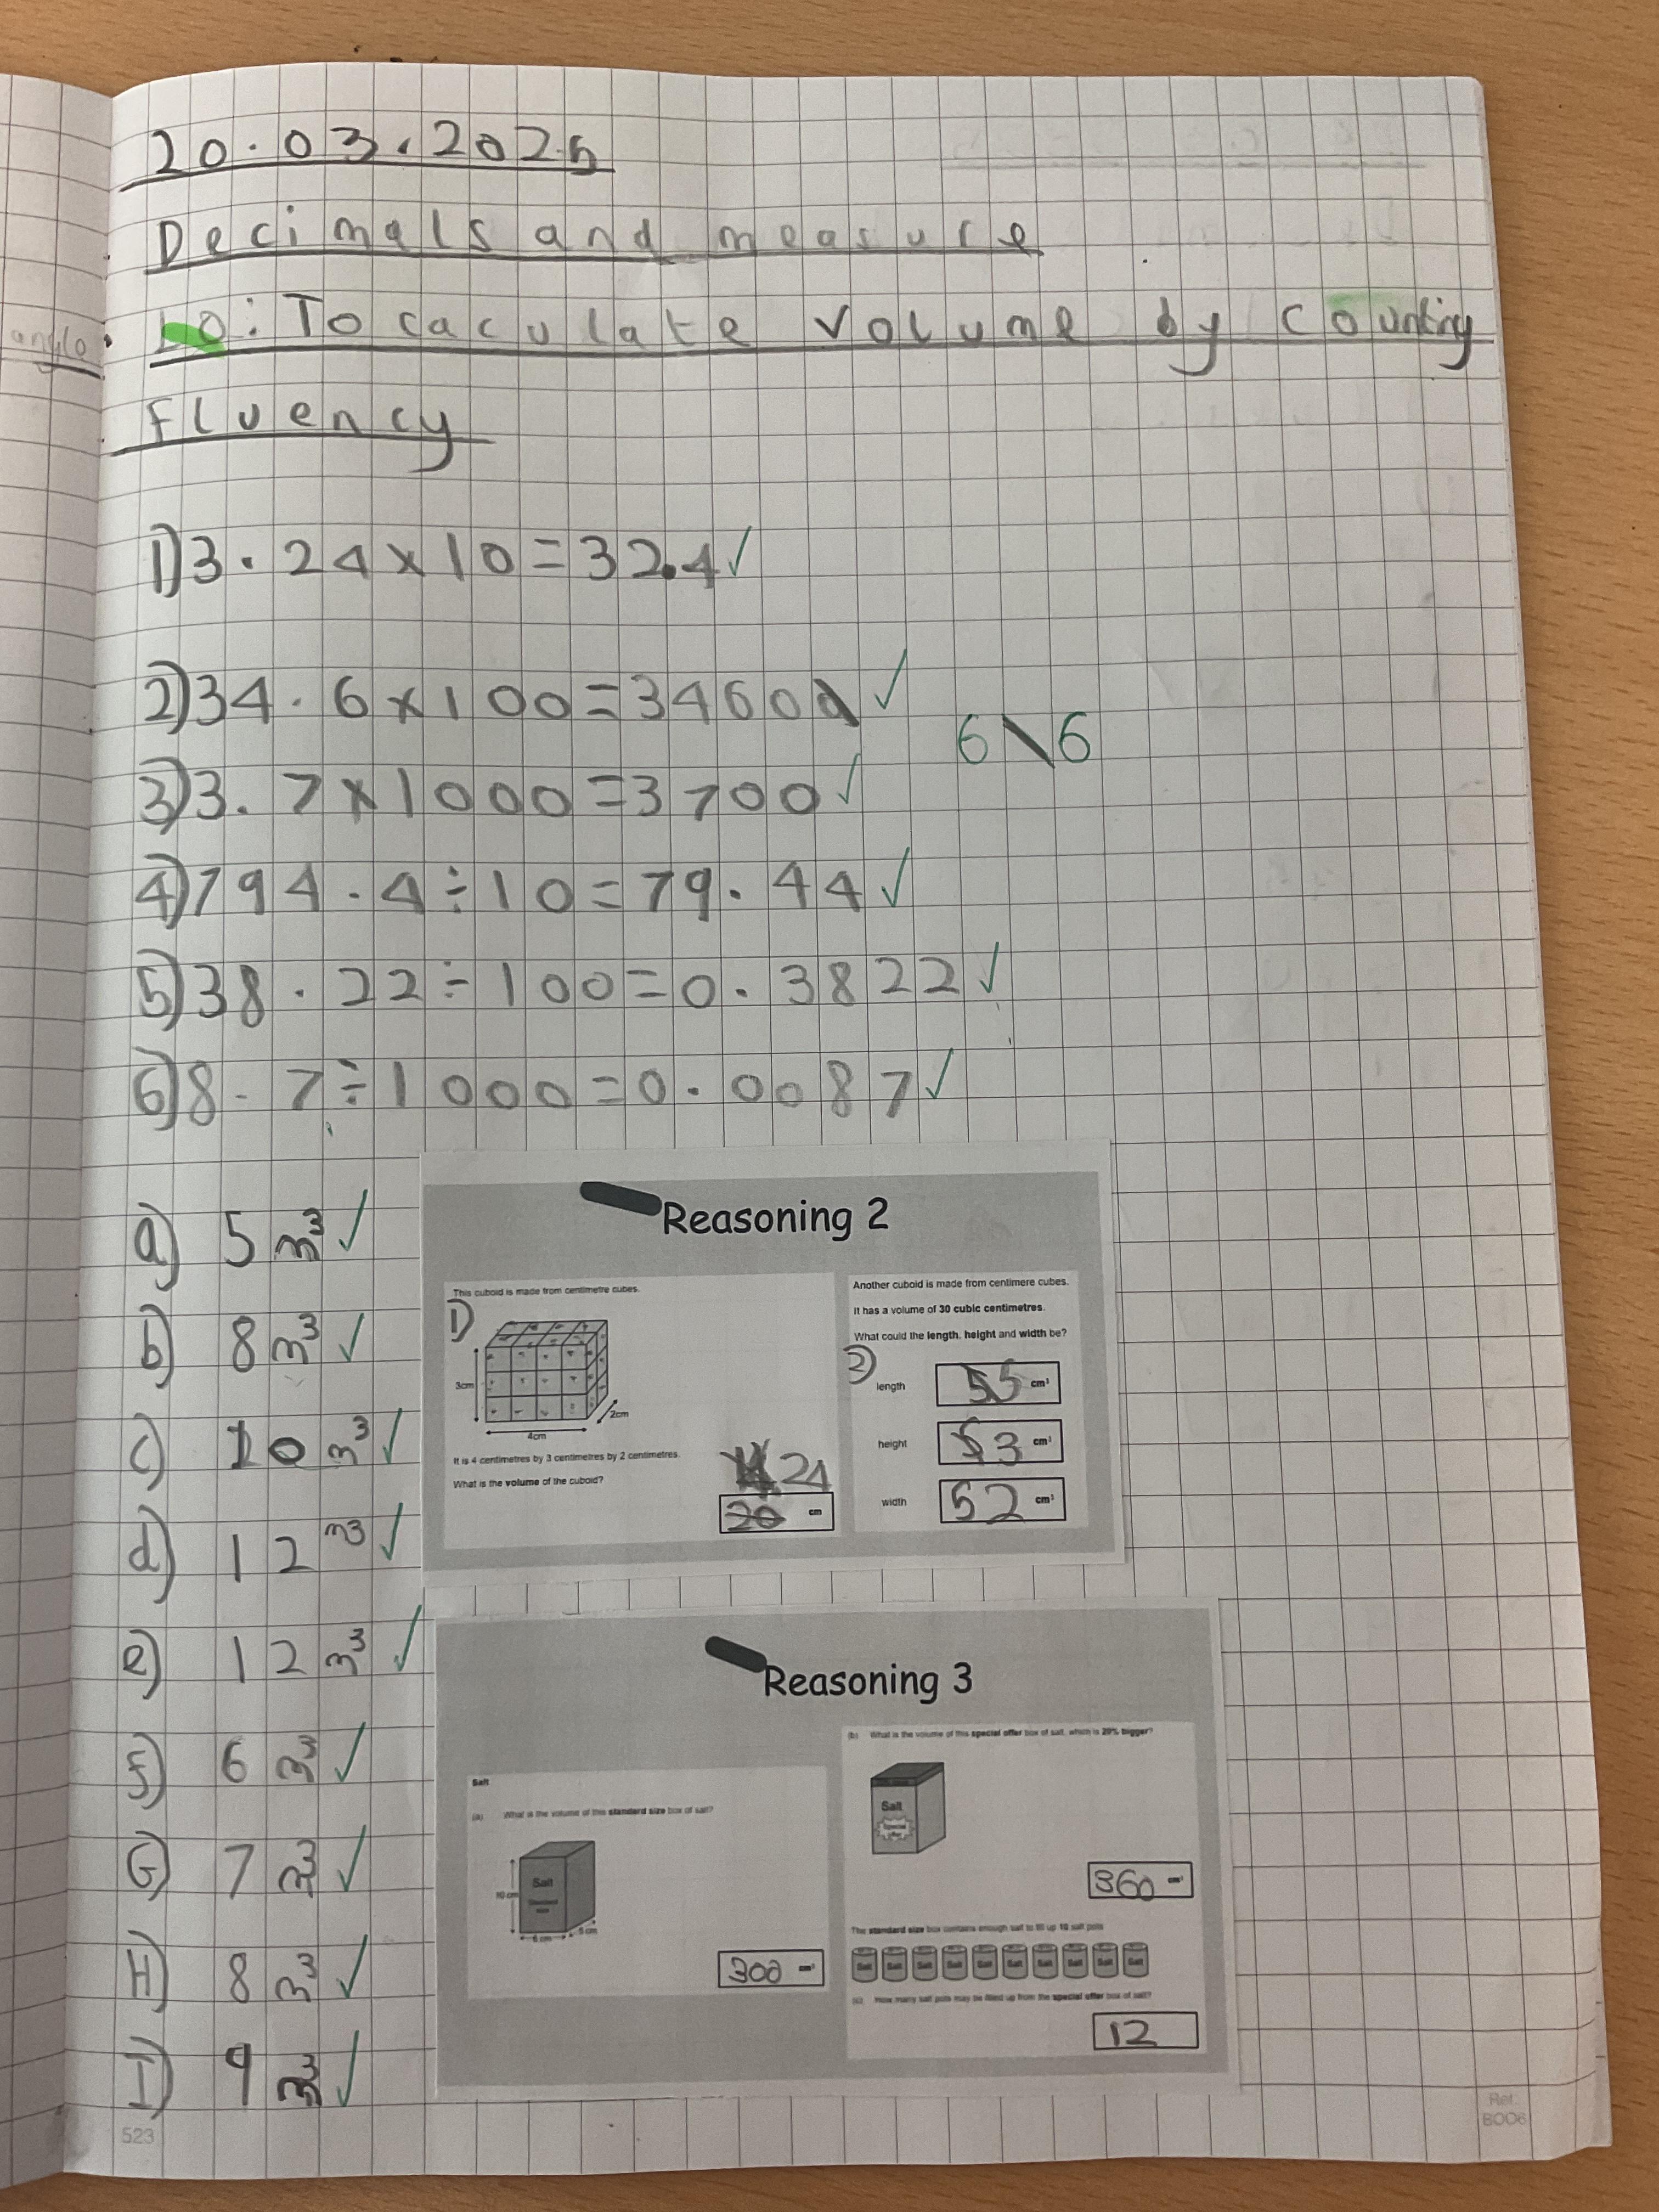 20.03.2025
Decimals and measure
LO: To caculate volume by counting
angle
Fluency
1) 3.24 x 10 = 32.4 ✓
2) 34.6 x 100 = 3460 ✓
6 \ 6
3) 3.7 x 1000 = 3700 ✓
4) 794.4 ÷ 10 = 79.44 ✓
5) 38.22 ÷ 100 = 0.3822 ✓
6) 8.7 ÷ 1000 = 0.0087 ✓
a) 5 m³ ✓
b) 8 m³ ✓
c) 10 m³ ✓
d) 12 m³ ✓
e) 12 m³ ✓
f) 6 m³ ✓
G) 7 m³ ✓
H) 8 m³ ✓
I) 9 m³ ✓
Reasoning 2
This cuboid is made from centimetre cubes.
1)
3cm
2cm
4cm
It is 4 centimetres by 3 centimetres by 2 centimetres.
What is the volume of the cuboid?
24
20 cm
Another cuboid is made from centimere cubes.
It has a volume of 30 cubic centimetres.
What could the length, height and width be?
2)
length 5 cm³
height 3 cm³
width 52 cm³
Reasoning 3
Salt
(a) What is the volume of this standard size box of salt?
Salt
Standard size
10 cm
6 cm
5 cm
300 cm³
(b) What is the volume of this special offer box of salt, which is 20% bigger?
Salt
Special offer
360 cm³
The standard size box contains enough salt to fill up 10 salt pots
Salt Salt Salt Salt Salt Salt Salt Salt Salt Salt
(c) How many salt pots may be filled up from the special offer box of salt?
12
523
Ref:
BOO6